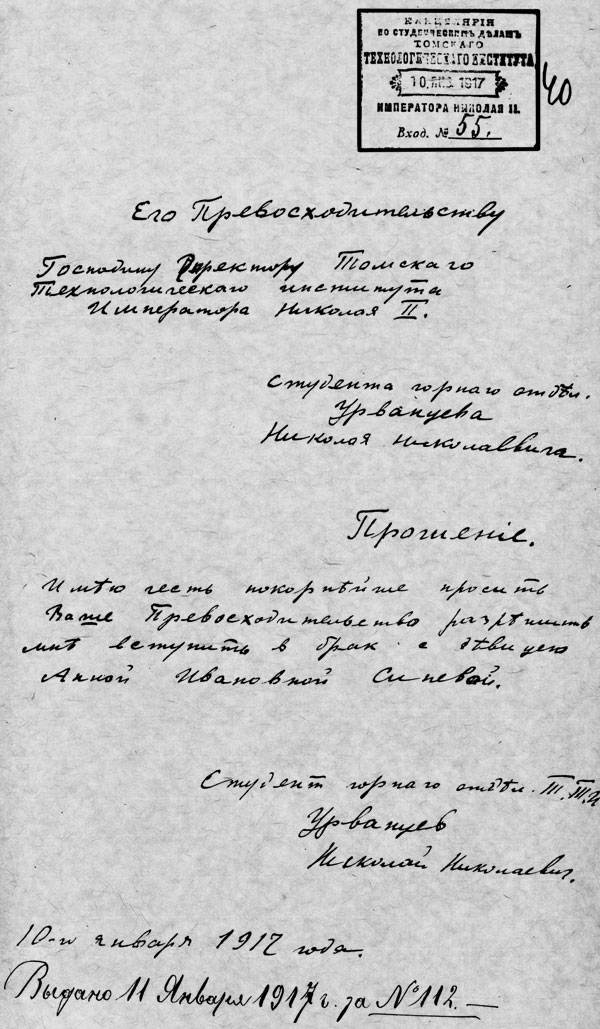 КАНЦЕЛЯРІЯ
ПО СТУДЕНЧЕСКИМЪ ДѢЛАМЪ
ТОМСКАГО
ТЕХНОЛОГИЧЕСКАГО ИНСТИТУТА
10 ЯНВ. 1917
ИМПЕРАТОРА НИКОЛАЯ II.
Вход. № 55.
40
Его Превосходительству
Господину Директору Томскаго
Технологическаго института
Императора Николая II.
Студента горнаго отдѣл.
Урванцева
Николая Николаевича.
Прошеніе.
Имѣю честь покорнѣйше просить
Ваше Превосходительство разрѣшить
мнѣ вступить в брак с дѣвицею
Анной Ивановной Синевой.
Студент горнаго отдѣл. Т.Т.И
Урванцев
Николай Николаевич.
10-го января 1917 года.
Выдано 11 Января 1917 г. за № 112.—